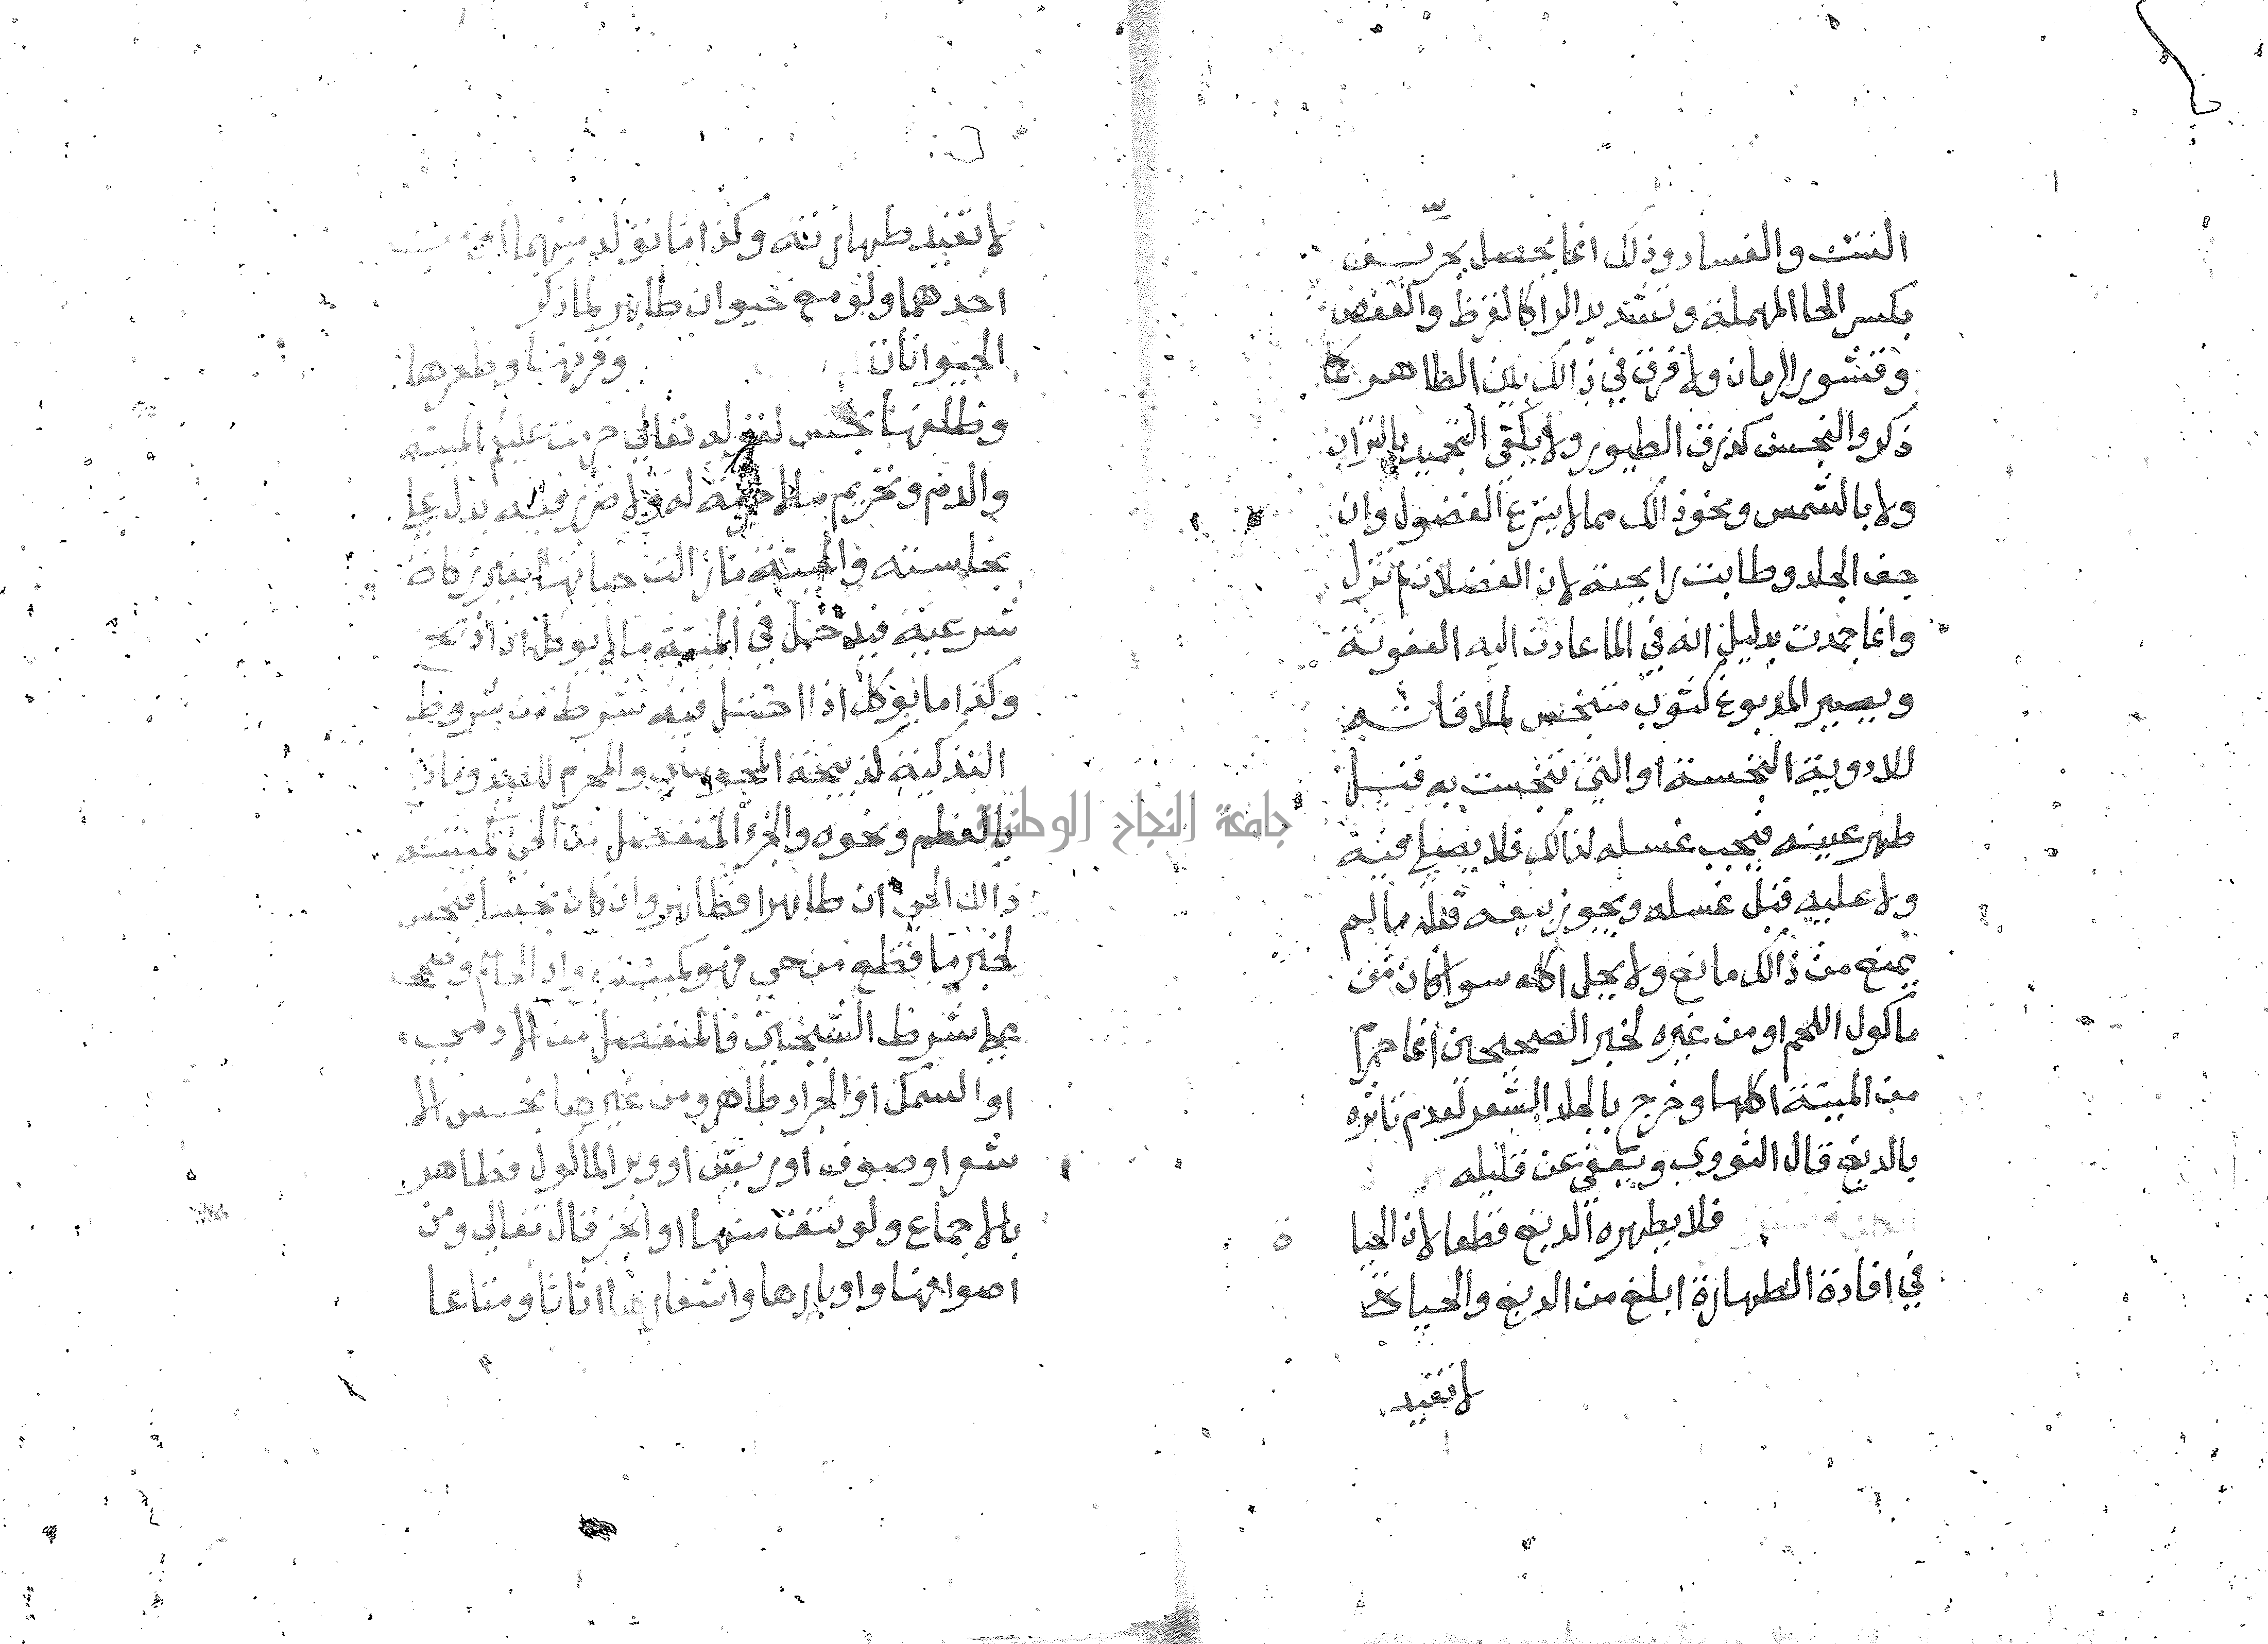 النتن والفساد وذلك انما يحصل بحريف
بكسر الحا المهملة وتشديد الرا كالقرظ والعفص
وقشور الرمان ولا فرق في ذالك بين الطاهر كما
ذكر والنجس كذرق الطيور ولا يكفي التجميد بالتراب
ولا بالشمس ونحو ذالك مما لا ينزع الفضول وان
جف الجلد وطابت رايحته لان الفضلات لم تزل
وانما جمدت بدليل انه في الما عادت اليه العفونة
ويصير المدبوغ كثوب متنجس لملاقاته
للادوية النجسة او التي تنجست به قبل
طهر عينه فيجب غسله لذالك فلا يصلي فيه
ولا عليه قبل غسله ويجوز بيعه قبله ما لم
يمنع من ذالك مانع ولا يحل اكله سوا كان من
ماكول اللحم او من غيره لخبر الصحيحين انما حرم
من الميتة اكلها وخرج بالجلد الشعر لعدم تاثره
بالدبغ قال النووي ويعفى عن قليله
فلا يطهره الدبغ قطعا لان الحيا
في افادة الطهارة ابلغ من الدبغ والحياة
لا تفيد
لا تفيد طهارته وكذا ما تولد منهما او من
احدهما ولو مع حيوان طاهر لما ذكر
الحيوانات وقرنها وظفرها
وظلفها نجس لقوله تعالى حرمت عليكم الميتة
والدم وتحريم ما لا حرمة له ولا ضرر فيه يدل على
نجاسته والميتة ما زالت حياتها بغير ذكاة
شرعية فيدخل في الميتة ما لا يوكل اذا ذبح
وكذا ما يوكل اذا اختل فيه شرط من شروط
التذكية كذبيحة المجوسي والمحرم للصيد وما ذبح
بالعظم ونحوه والجزء المنفصل من الحي كميتته
ذالك الحي ان طاهرا فطاهر وان كان نجسا فنجس
لخبر ما قطع من حي فهو كميتته رواه الحاكم وصححه
على شرط الشيخين فالمنفصل من الادمي
او السمك او الجراد طاهر ومن غيرها نجس الا
شعر او صوف او ريش او وبر الماكول فطاهر
بالاجماع ولو نتفت منها او انجز قال تعالى ومن
اصوافها واوبارها واشعارها اثاثا ومتاعا
جامعة النجاح الوطنية